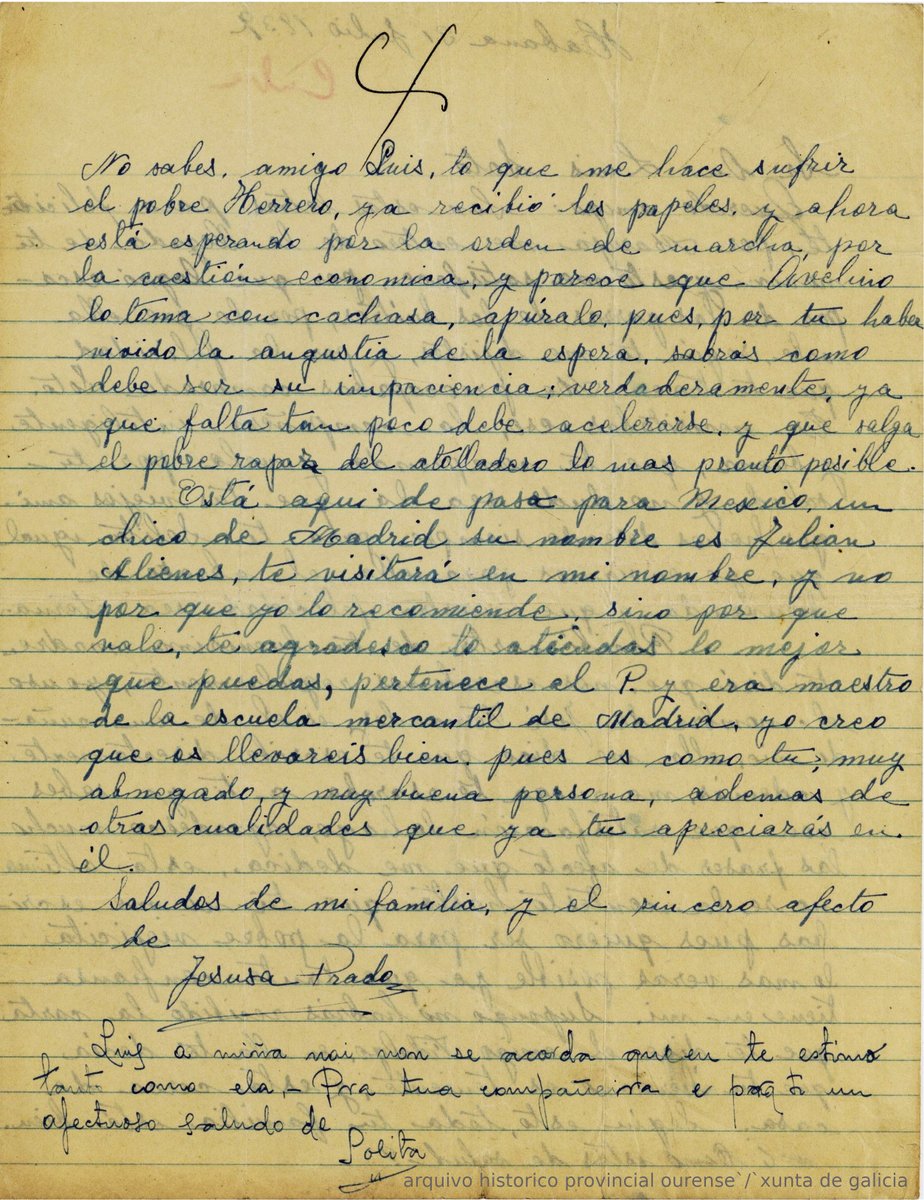 No sabes, amigo Luis, lo que me hace sufrir
el pobre Herrero, ya recibió los papeles, y ahora
está esperando por la orden de marcha, por
la cuestión economica, y parece que Avelino
lo toma con cachasa, apúralo, pues, por tu haber
vivido la angustia de la espera, sabrás como
debe ser su impaciencia; verdaderamente, ya
que falta tan poco debe acelerarse, y que salga
el pobre rapaz del atolladero lo mas pronto posible.
Está aqui de paso para Mexico, un
chico de Madrid su nombre es Julian
Alienes, te visitará en mi nombre, y no
por que yo lo recomiende, sino por que
vale, te agradesco lo atiendas lo mejor
que puedas, pertenece el P. y era maestro
de la escuela mercantil de Madrid, yo creo
que os llevareis bien, pues es como tu, muy
abnegado, y muy buena persona, ademas de
otras cualidades que ya tu apreciarás en
él.
Saludos de mi familia, y el sincero afecto
de
Jesusa Prado
Luis a miña nai non se acorda que eu te estimo
tanto como ela,- Pra tua compañeira e pra ti un
afectuoso saludo de
Lolita
arquivo historico provincial ourense`/`xunta de galicia